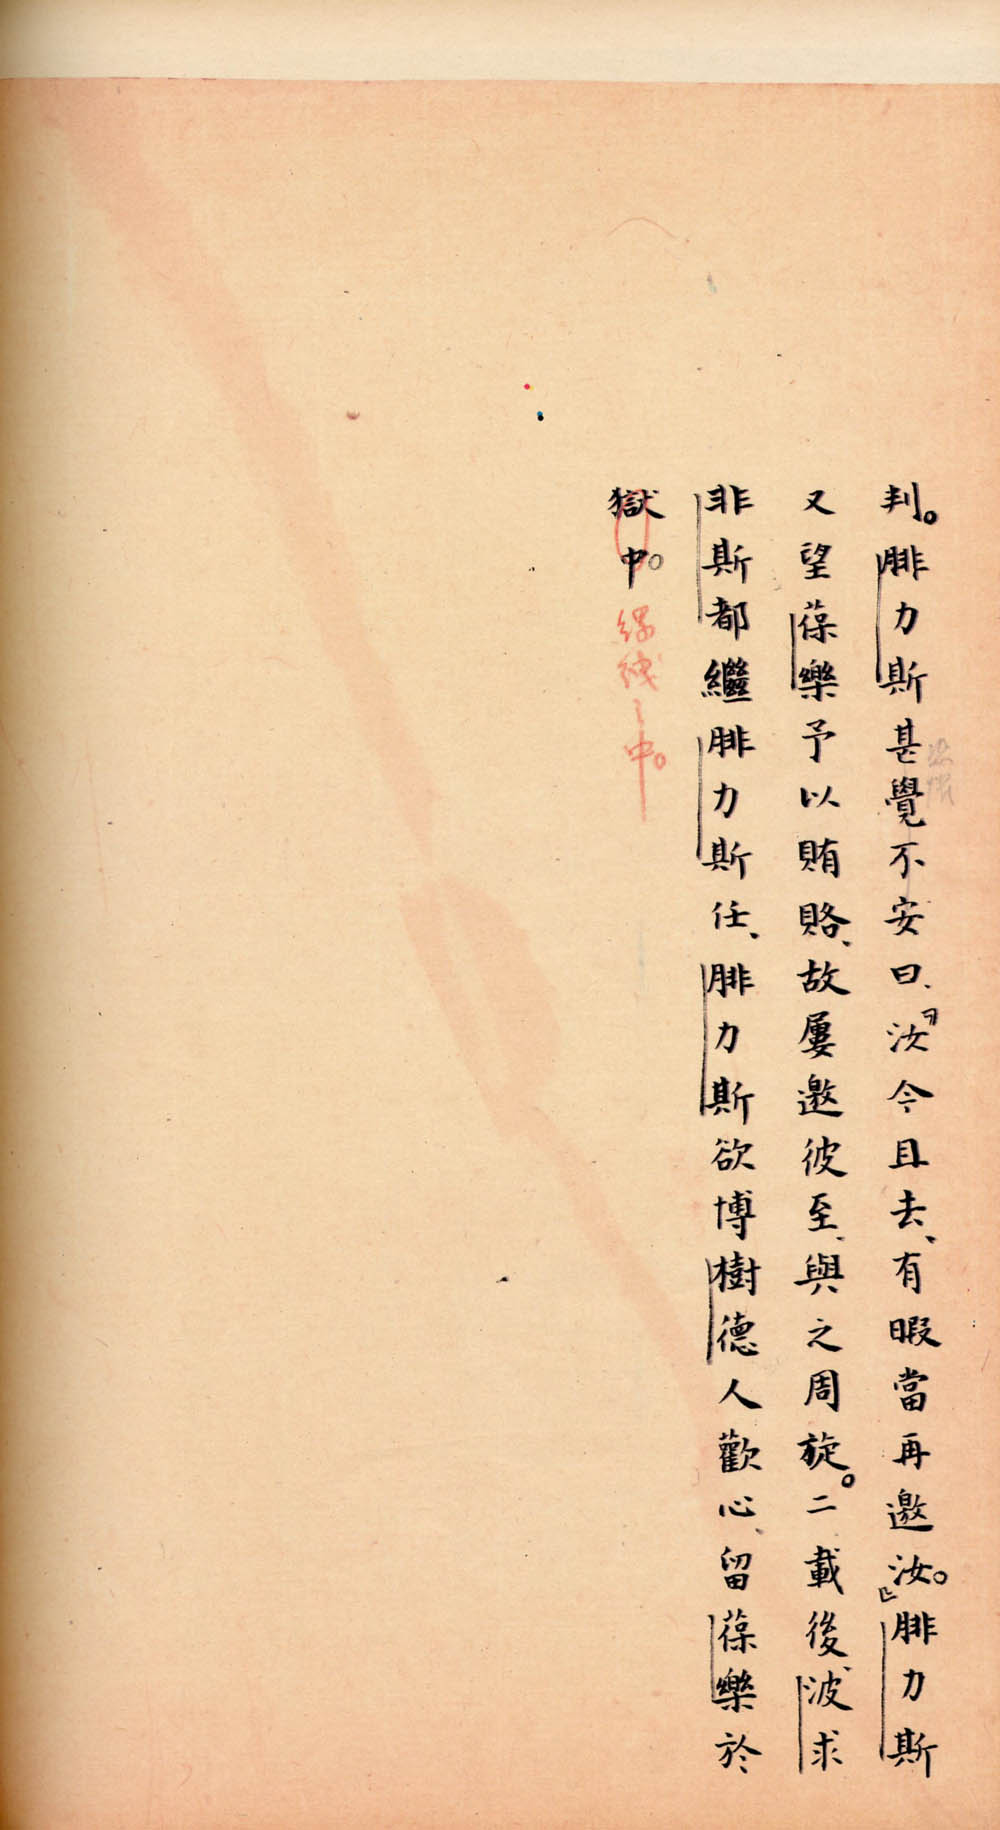 判。腓力斯甚覺不安曰、『汝今且去、有暇當再邀汝。』腓力斯
又望葆樂予以賄賂、故屢邀彼至、與之周旋。二載後、波求
非斯都繼腓力斯任、腓力斯欲博樹德人歡心、留葆樂於
獄中。
縲絏之中。